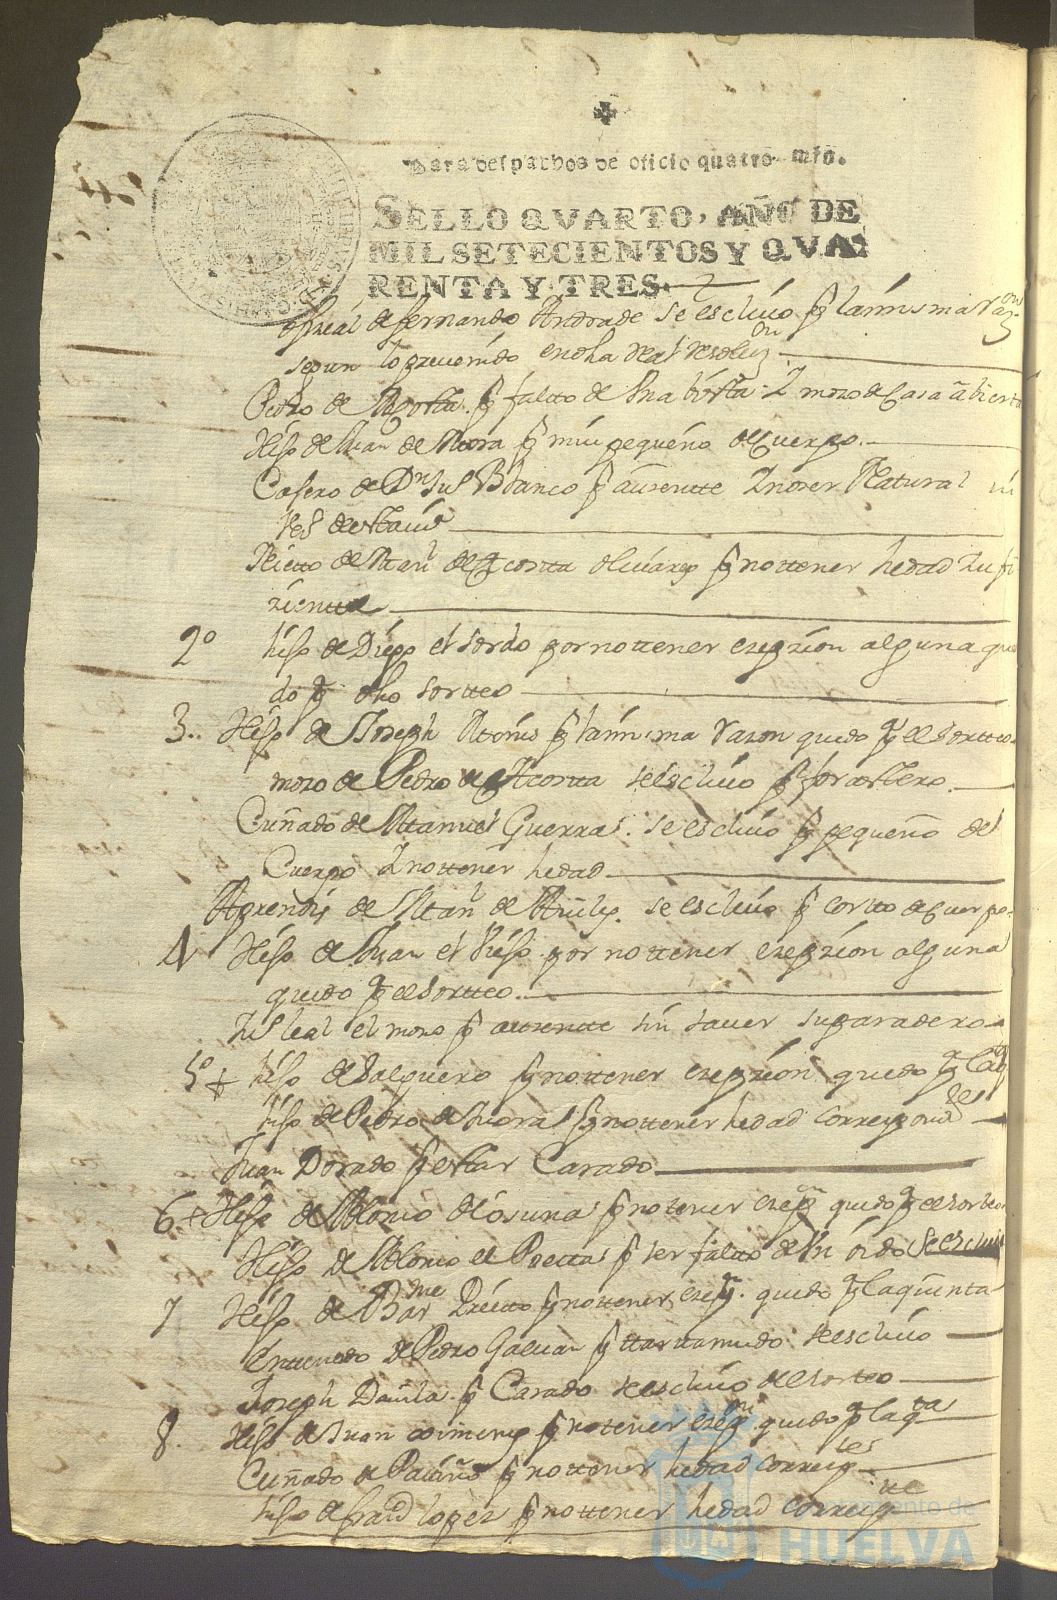 Para despachos de oficio quatro mrs.
SELLO QVARTO, AÑO DE
MIL SETECIENTOS Y QVA-
RENTA Y TRES.
ofizial de fernando Andrade se escluio p la misma razon
segun lo prevenido en dha Real Resoluzn
Pedro de Acosta p falto de una bista I mozo de Casa abierta
Hijo de Juan de Mora p mui pequeño de Cuerpo
Casero de Dn Blanco p ausente I no ser Natural
Nieto de Manl de Acosta olivares p no ttener hedad sufi
ziente
2º hijo de Diego el sordo por no ttener exepzion alguna que
do pa dho sorteo
3.. Hijo de Joseph p la misma razon quedo pa el sortteo
mozo de Pedro de Acosta se escluio p forastero
Cuñado de Manuel Guerra se escluio p pequeño de
Cuerpo I no ttener hedad
Aprendis de Manl de Aviles se escluio p corto de Cuerpo
4 Hijo de Juan el Viejo por no ttener exepzion alguna
quedo pa el sortteo
leal el mozo p ausente sin saver su paradero
5º + hijo de Salguero p no ttener exepzion quedo pa
hijo de Pedro de Mora p no ttener hedad correspondte
Juan Dorado p estar Casado
6. + Hijo de Alonso de Osuna p no tener exepn quedo pa el sorteo
Hijo de Alonso el Poeta p ser falto de un oido se escluio
7 Hijo de Barme Prieto p no ttener exepn. quedo pa la quinta
Enttenado de Pedro Galvan p ttarttamudo se escluio
Joseph Davila p Casado se escluio del sorteo
8. Hijo de Juan ximenes p no tener exepn quedo pa la qta
Cuñado de Patiño p no ttener hedad corresp
hijo de franco lopez p no ttener hedad correspte
Ayuntamiento de
HUELVA